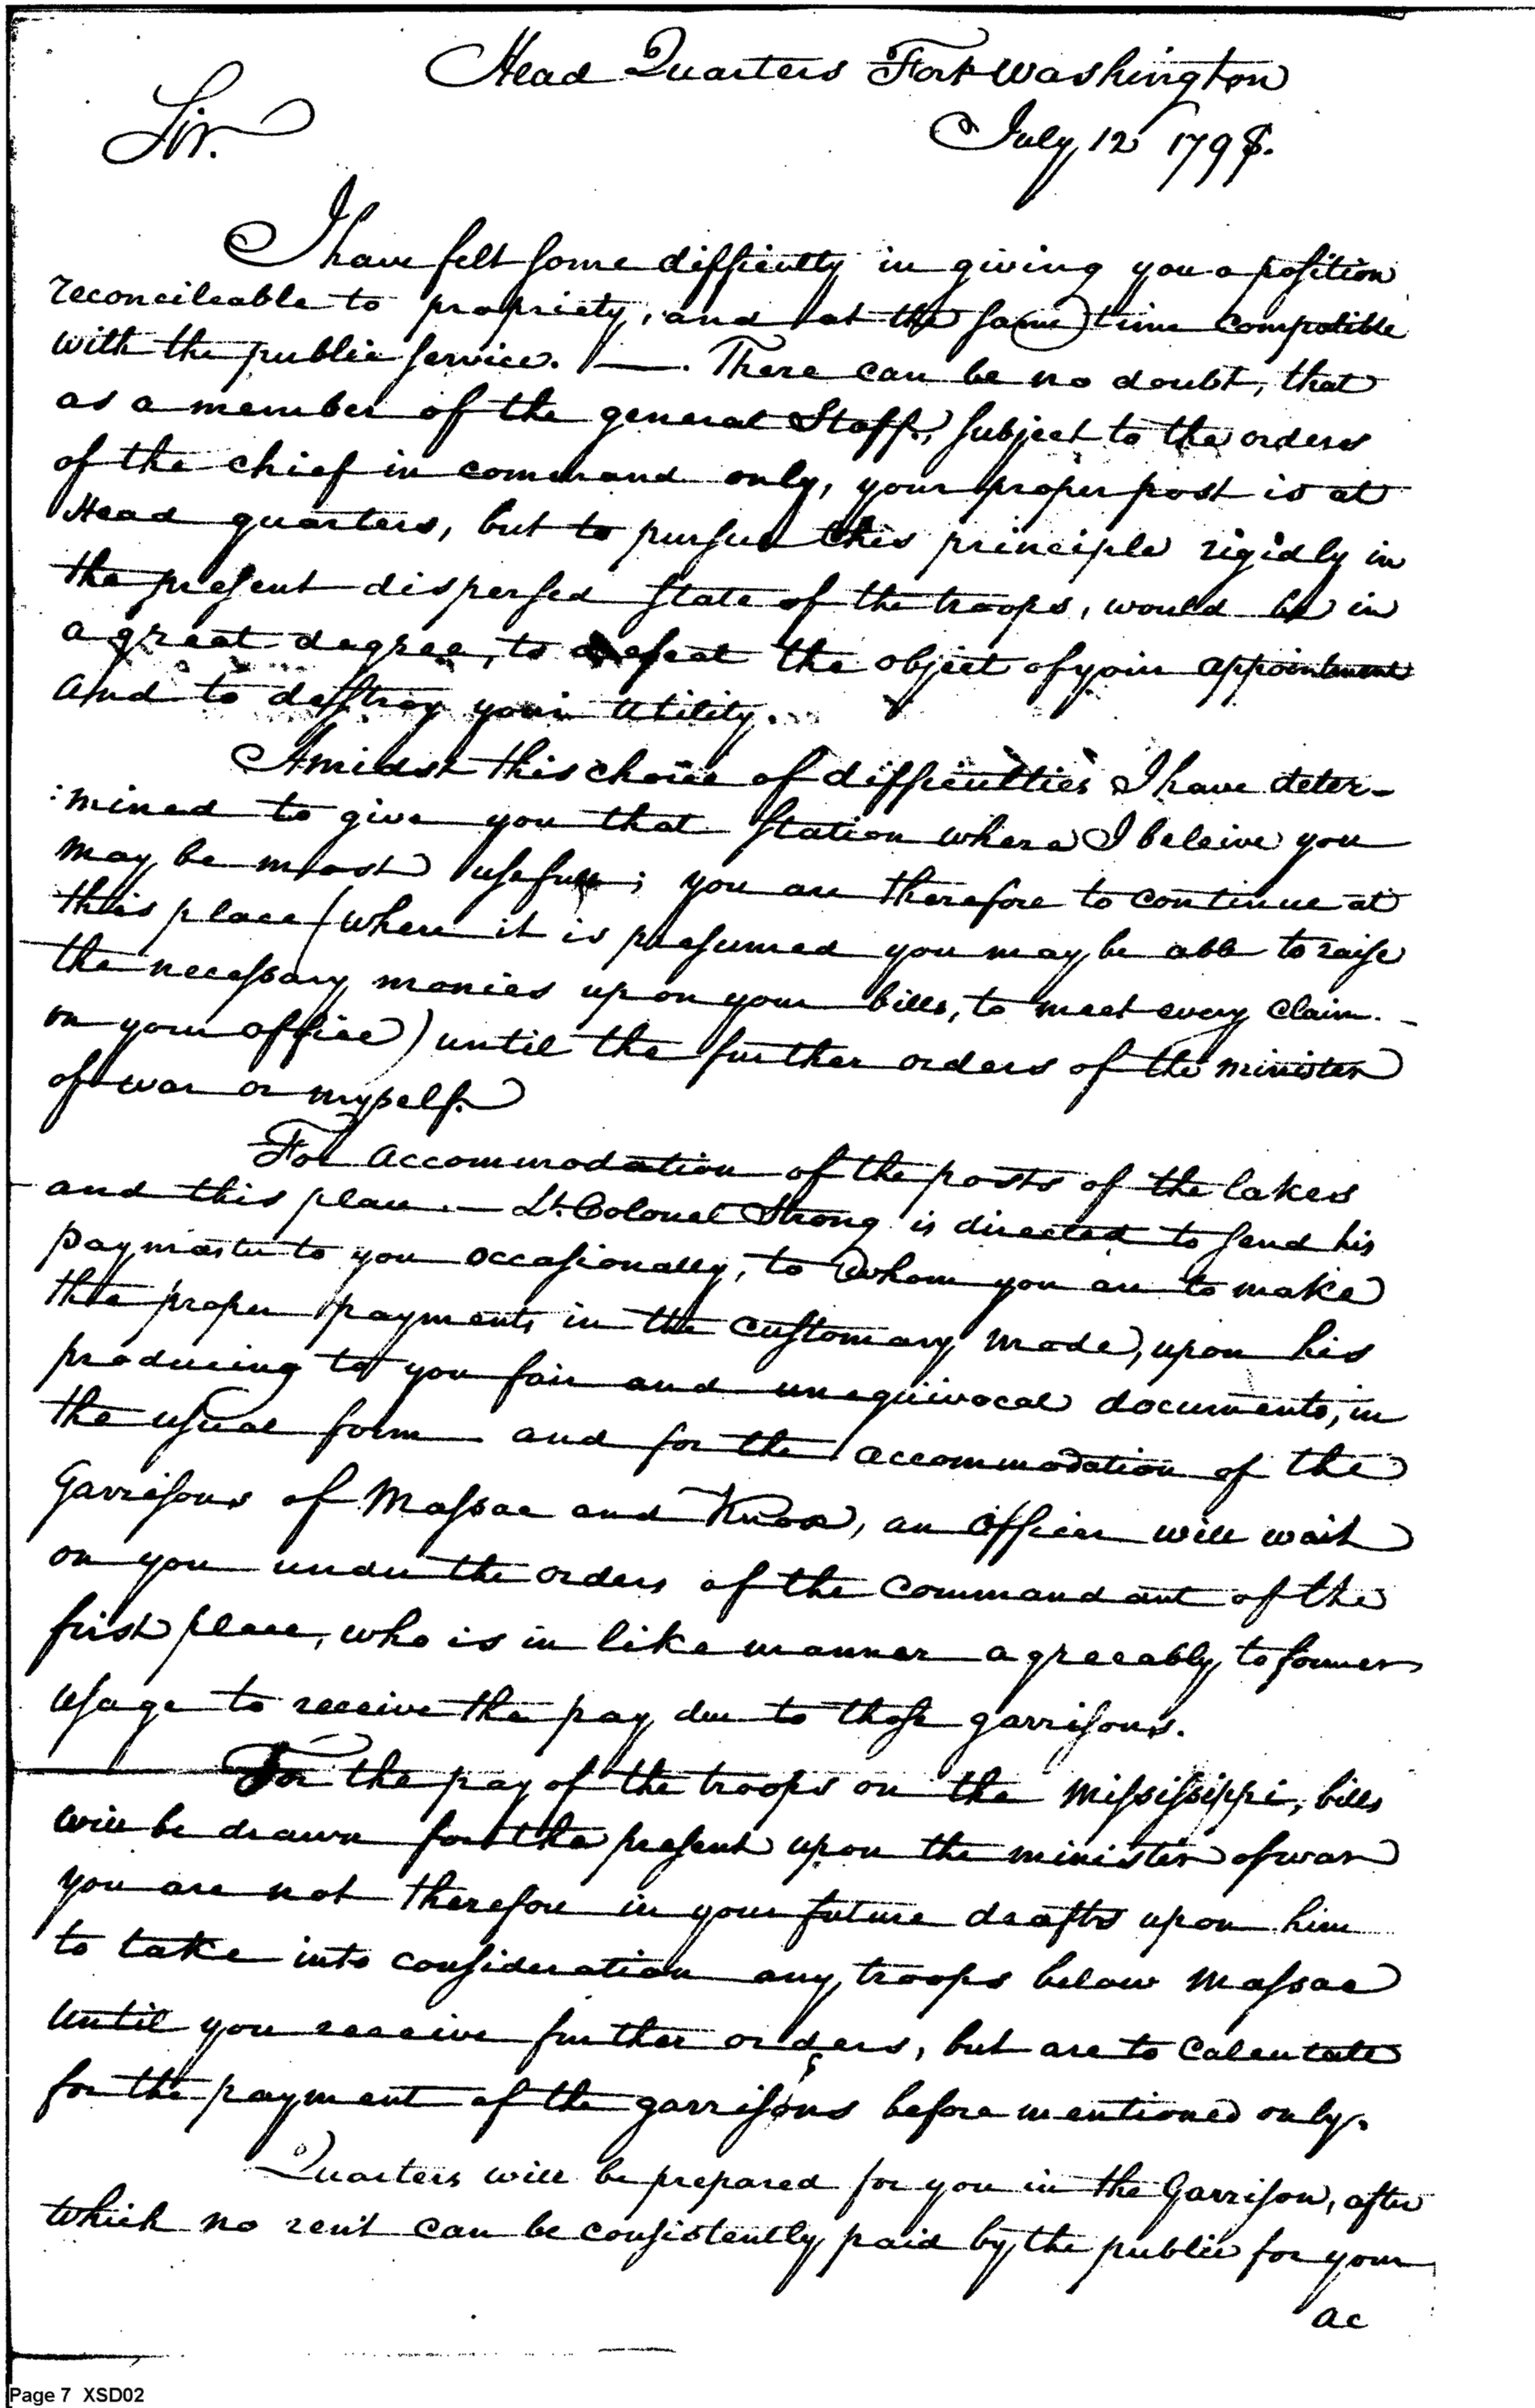 Head Quarters Fort Washington
July 12 1798.
Sir.
I have felt some difficulty in giving you a position
reconcileable to propriety, and at the same time compatible
with the public service. — . There can be no doubt, that
as a member of the general Staff, subject to the orders
of the chief in command only, your proper post is at
Head quarters, but to pursue this principle rigidly in
the present dispersed state of the troops, would be in
a great degree, to defeat the object of your appointment
and to destroy your utility.
Amidst this choice of difficulties I have deter-
:mined to give you that station where I beleive you
may be most usefull; you are therefore to continue at
this place (where it is presumed you may be able to raise
the necessary monies upon your bills, to meet every claim. -
on your office) until the further orders of the minister
of war or myself.
For accommodation of the posts of the lakes
and this place. — Lt. Colonel Strong is directed to send his
paymaster to you occasionally, to whom you are to make
the proper payments in the customary mode, upon his
producing to you fair and unequivocal documents, in
the usual form and for the accommodation of the
Garrisons of Massac and Knox, an officer will wait
on you under the orders of the commandant of the
first place, who is in like manner agreeably to former
usage to receive the pay due to those garrisons.
For the pay of the troops on the Mississippi, bills
will be drawn for the present upon the minister of war
you are not therefore in your future drafts upon him
to take into consideration any troops below Massac
until you receive further orders, but are to calculate
for the payment of the garrisons before mentioned only.
Quarters will be prepared for you in the Garrison, after
which no rent can be consistently paid by the public for your
ac
Page 7 XSD02